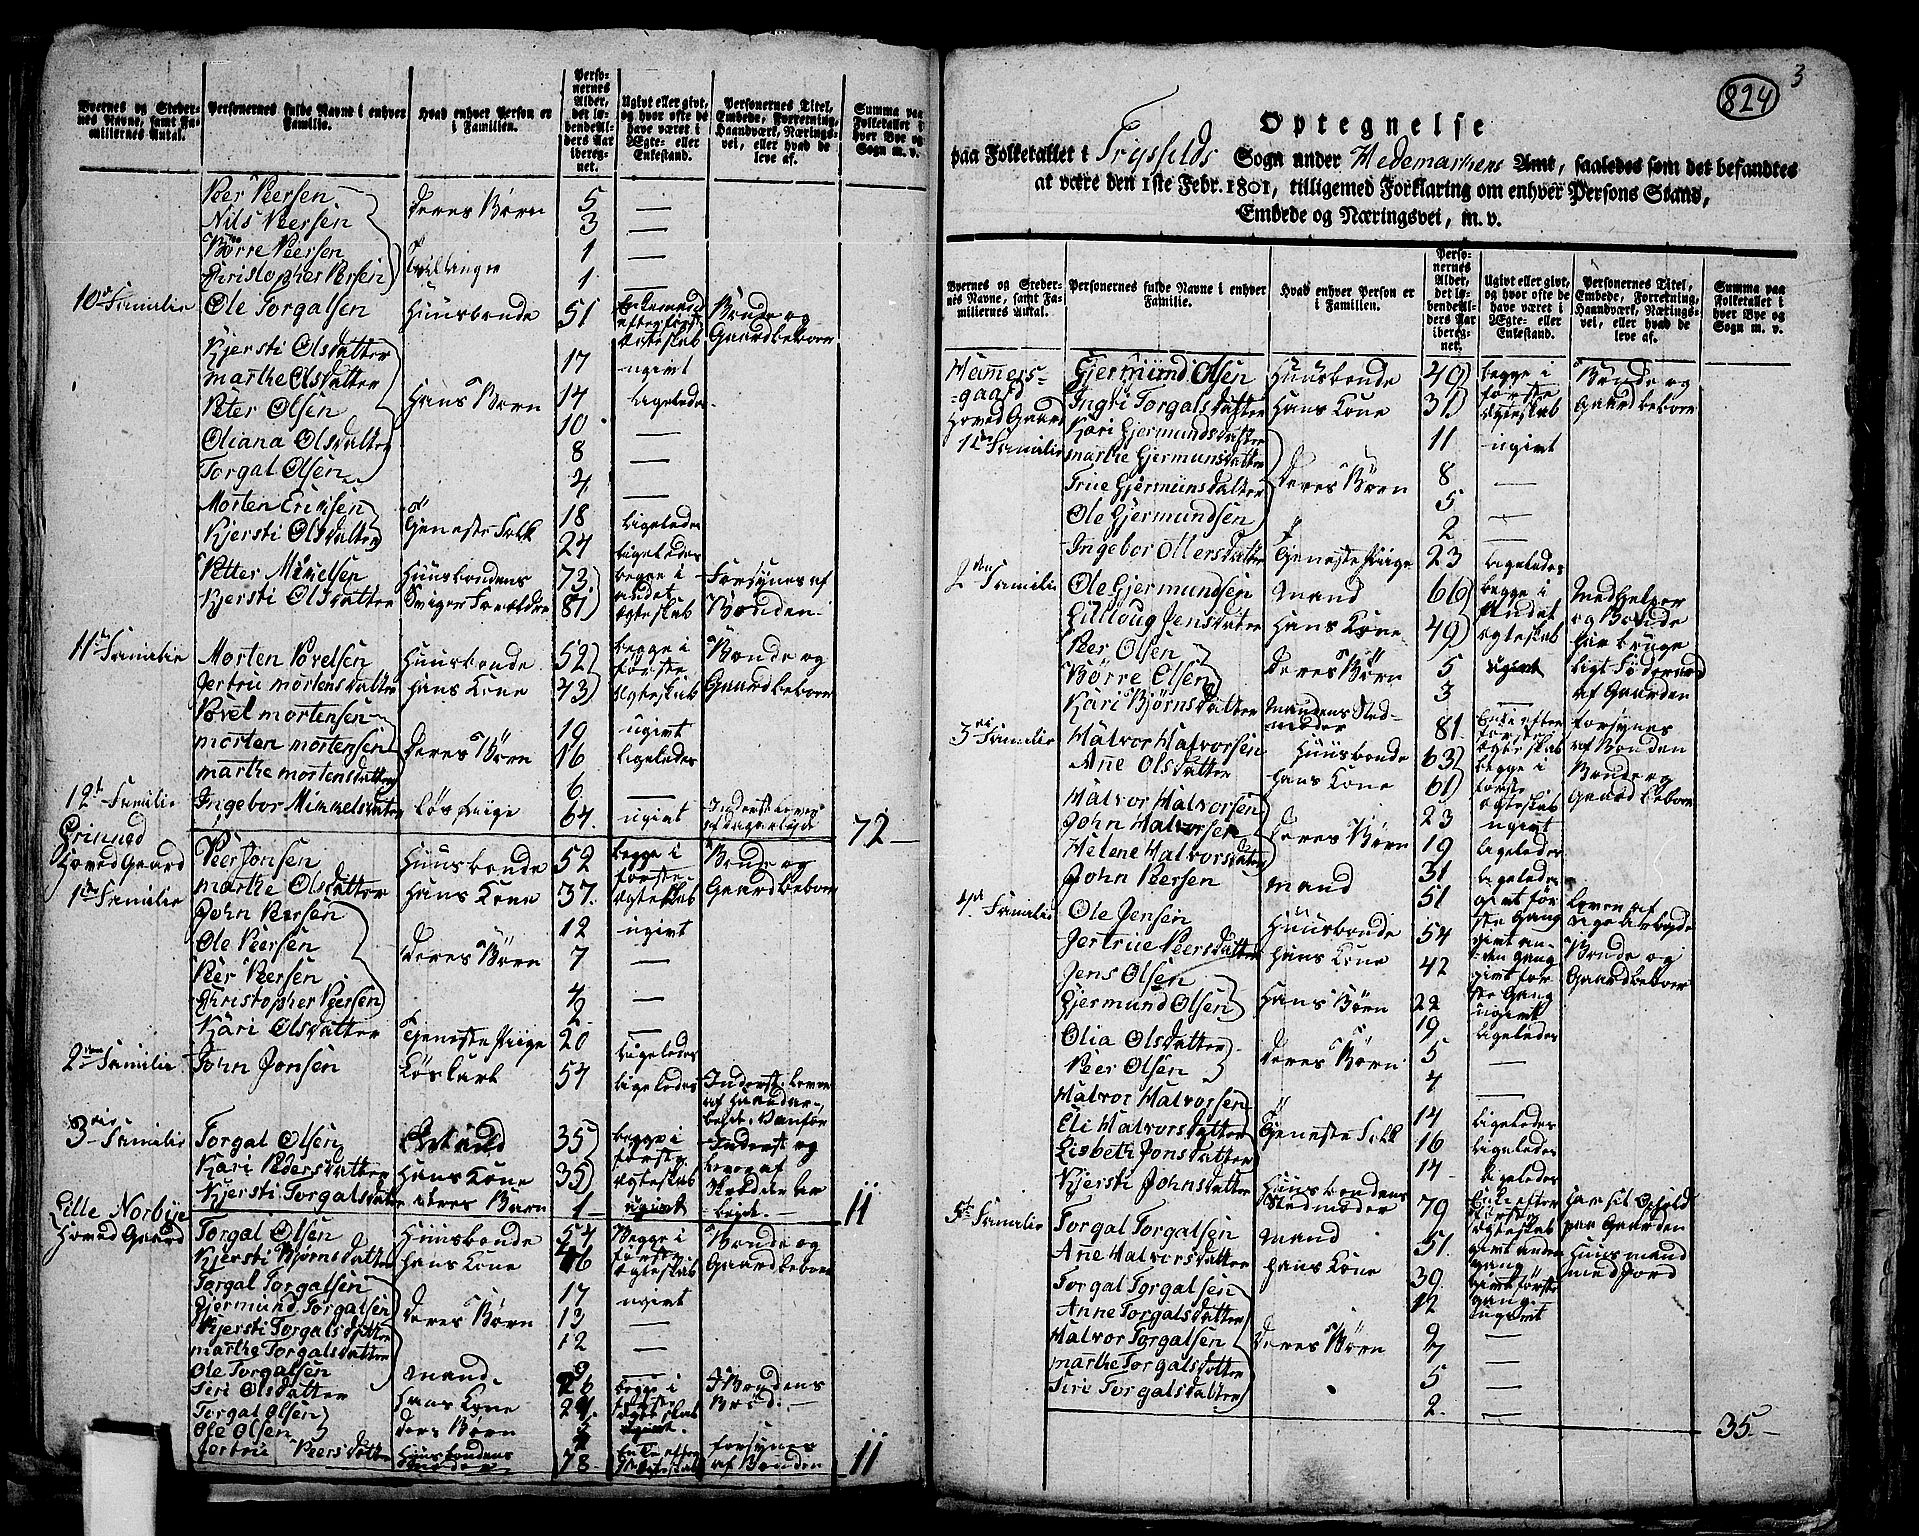 Byernes og Stedernes Navne, samt Familiernes Antal.
Personernes fulde Navne i enhver Familie.
Hvad enhver Person er i Familien.
Personernes Alder, det løbende Alders Aar iberegnet.
Ugivt eller givt, og hvor ofte de have været i Ægte- eller Enkestand.
Personernes Titel, Embede, Forretning, Haandværk, Næringsvei, eller hvad de leve af.
Summa paa Folketallet i hver Bye og Sogn m. v.
Peer Peersen deres Børn 5 —
Nils Peersen 3 —
Børre Peersen Tvillinger 1 —
Christopher Persen 1 —
10de Familie Ole Torgalsen Huusbonde 51 Enkemand efter første Ægteskab Bonde og Gaardbeboer
Kjersti Olsdatter hans Børn 17 ugivt
Marthe Olsdatter 14 ligeledes
Peter Olsen 10 —
Oliana Olsdatter 8 —
Torgal Olsen 4 —
Morten Ericksen Tjeneste Folk 18 ligeledes
Kjersti Olsdatter 24 ligeledes
Petter Mikelsen Huusbondens 73 begge i andet Forsynes af
Kjersti Olsdatter Sviger Forældre 81 Ægteskab Bonden
11te Familie Morten Povelsen Huusbonde 52 begge i første Bonde og
Jertru Mortensdatter hans Kone 43 Ægteskab Gaardbeboer
Povel Mortensen deres Børn 19 ugivt
Morten Mortensen 16 ligeledes
Marthe Mortensdatter 6 —
12te Familie Ingebor Mimmelsdatter løs Piige 64 ugivt 72
Grinned Hoved Gaard
1ste Familie Peer Jonsen Huusbonde 52 begge i første Bonde og
Marthe Olsdatter hans Kone 37 Ægteskab Gaardbeboer
John Peersen deres Børn 12 ugivt
Ole Peersen 7 —
Peer Peersen 4 —
Christopher Peersen 2 —
Kari Olsdatter Tjeneste Piige 20 ligeledes
2den Familie John Jonsen Løskarl 54 ligeledes
3die Familie Torgal Olsen 35 begge i første Inderst og
Kari Pedersdatter hans Kone 35 Ægteskab lever af
Kjersti Torgalsdatter deres Barn 1 ugivt 11
Lille Norbye Hoved Gaard
Torgal Olsen Huusbonde 54 Begge i første Bonde og
Kjersti Bjørnsdatter hans Kone 46 Ægteskab Gaardbeboer
Torgal Torgalsen deres Børn 17 ugivt
Gjermund Torgalsen 13 —
Kjersti Torgalsdatter 12 —
Marthe Torgalsdatter 9
Ole Torgalsen mand 26 begge i Bondens
Siri Olsdatter hans Kone første Ægteskab Brød.
Torgal Olsen deres Børn ugivt
Ole Olsen
Jertru Peersdatter Huusbondens Moder 78 Enke efter Forsynes af Bonden 11
824
3
Optegnelse
paa Folketallet i Trysfelds Sogn under Hedemarkens Amt, saaledes som det befandtes
at være den 1ste Febr. 1801, tilligemed Forklaring om enhver Persons Stand,
Embede og Næringsvei, m. v.
Byernes og Stedernes Navne, samt Familiernes Antal.
Personernes fulde Navne i enhver Familie.
Hvad enhver Person er i Familien.
Personernes Alder, det løbende Alders Aar iberegnet.
Ugivt eller givt, og hvor ofte de have været i Ægte- eller Enkestand.
Personernes Titel, Embede, Forretning, Haandværk, Næringsvei, eller hvad de leve af.
Summa paa Folketallet i hver Bye og Sogn m. v.
Hemmersgaard Hoved Gaard
1ste Familie Gjermund Olsen Huusbonde 40 begge i første Bonde og
Ingri Torgalsdatter hans Kone 31 Ægteskab Gaardbeboer
Kari Gjermundsdatter deres Børn 11 ugivt
Marthe Gjermunsdatter 8 —
True Gjermunsdatter 5
Ole Gjermundsen 2 —
Ingebor Ollersdatter Tjeneste Piige 23 ligeledes
2den Familie Ole Gjermundsen mand 66 begge i Andet Medhielper og Bonde
Lilloug Jensdatter hans Kone 49 Ægteskab
Peer Olsen deres Børn 5 ugivt
Børre Olsen 3 — af Gaarden
Kari Bjørnsdatter Mandens Stedmoder 81 Enke efter første Ægteskab forsynes af Bonden
3die Familie Halvor Halvorsen Huusbonde 63 begge i første Bonde og
Anne Olsdatter hans Kone 61 Ægteskab Gaardbeboer
Halvor Halvorsen deres Børn 23 ugivt
John Halvorsen 19 ligeledes
Helene Halvorsdatter 31 ligeledes
John Peersen mand 51 givt første Gang Leven af
4de Familie Ole Jensen Huusbonde 54 givt anden Gang Bonde og
Jertrue Peersdatter hans Kone 42 givt første Gang Gaardbeboer
Jens Olsen hans Børn 22 ugivt
Gjermund Olsen 19 ligeledes
Olia Olsdatter deres Børn 5 —
Peer Olsen 4 —
Halvor Halvorsen Tjeneste Folk 14 ligeledes
Eli Halvorsdatter 16 ligeledes
Lisbeth Jonsdatter 14 ligeledes
Kjersti Johnsdatter Huusbondens Stedmoder 79 Enke efter første Ægteskab har sit Ophold paa Gaarden
5te Familie Torgal Torgalsen mand 51 givt anden gang Huusmand
Anne Halvorsdatter hans Kone 39 givt første gang med Jord
Torgal Torgalsen deres Børn 12 ugivt
Anne Torgalsdatter 9 —
Halvor Torgalsen 7 —
Marthe Torgalsdatter 5 —
Siri Torgalsdatter 2 —
35